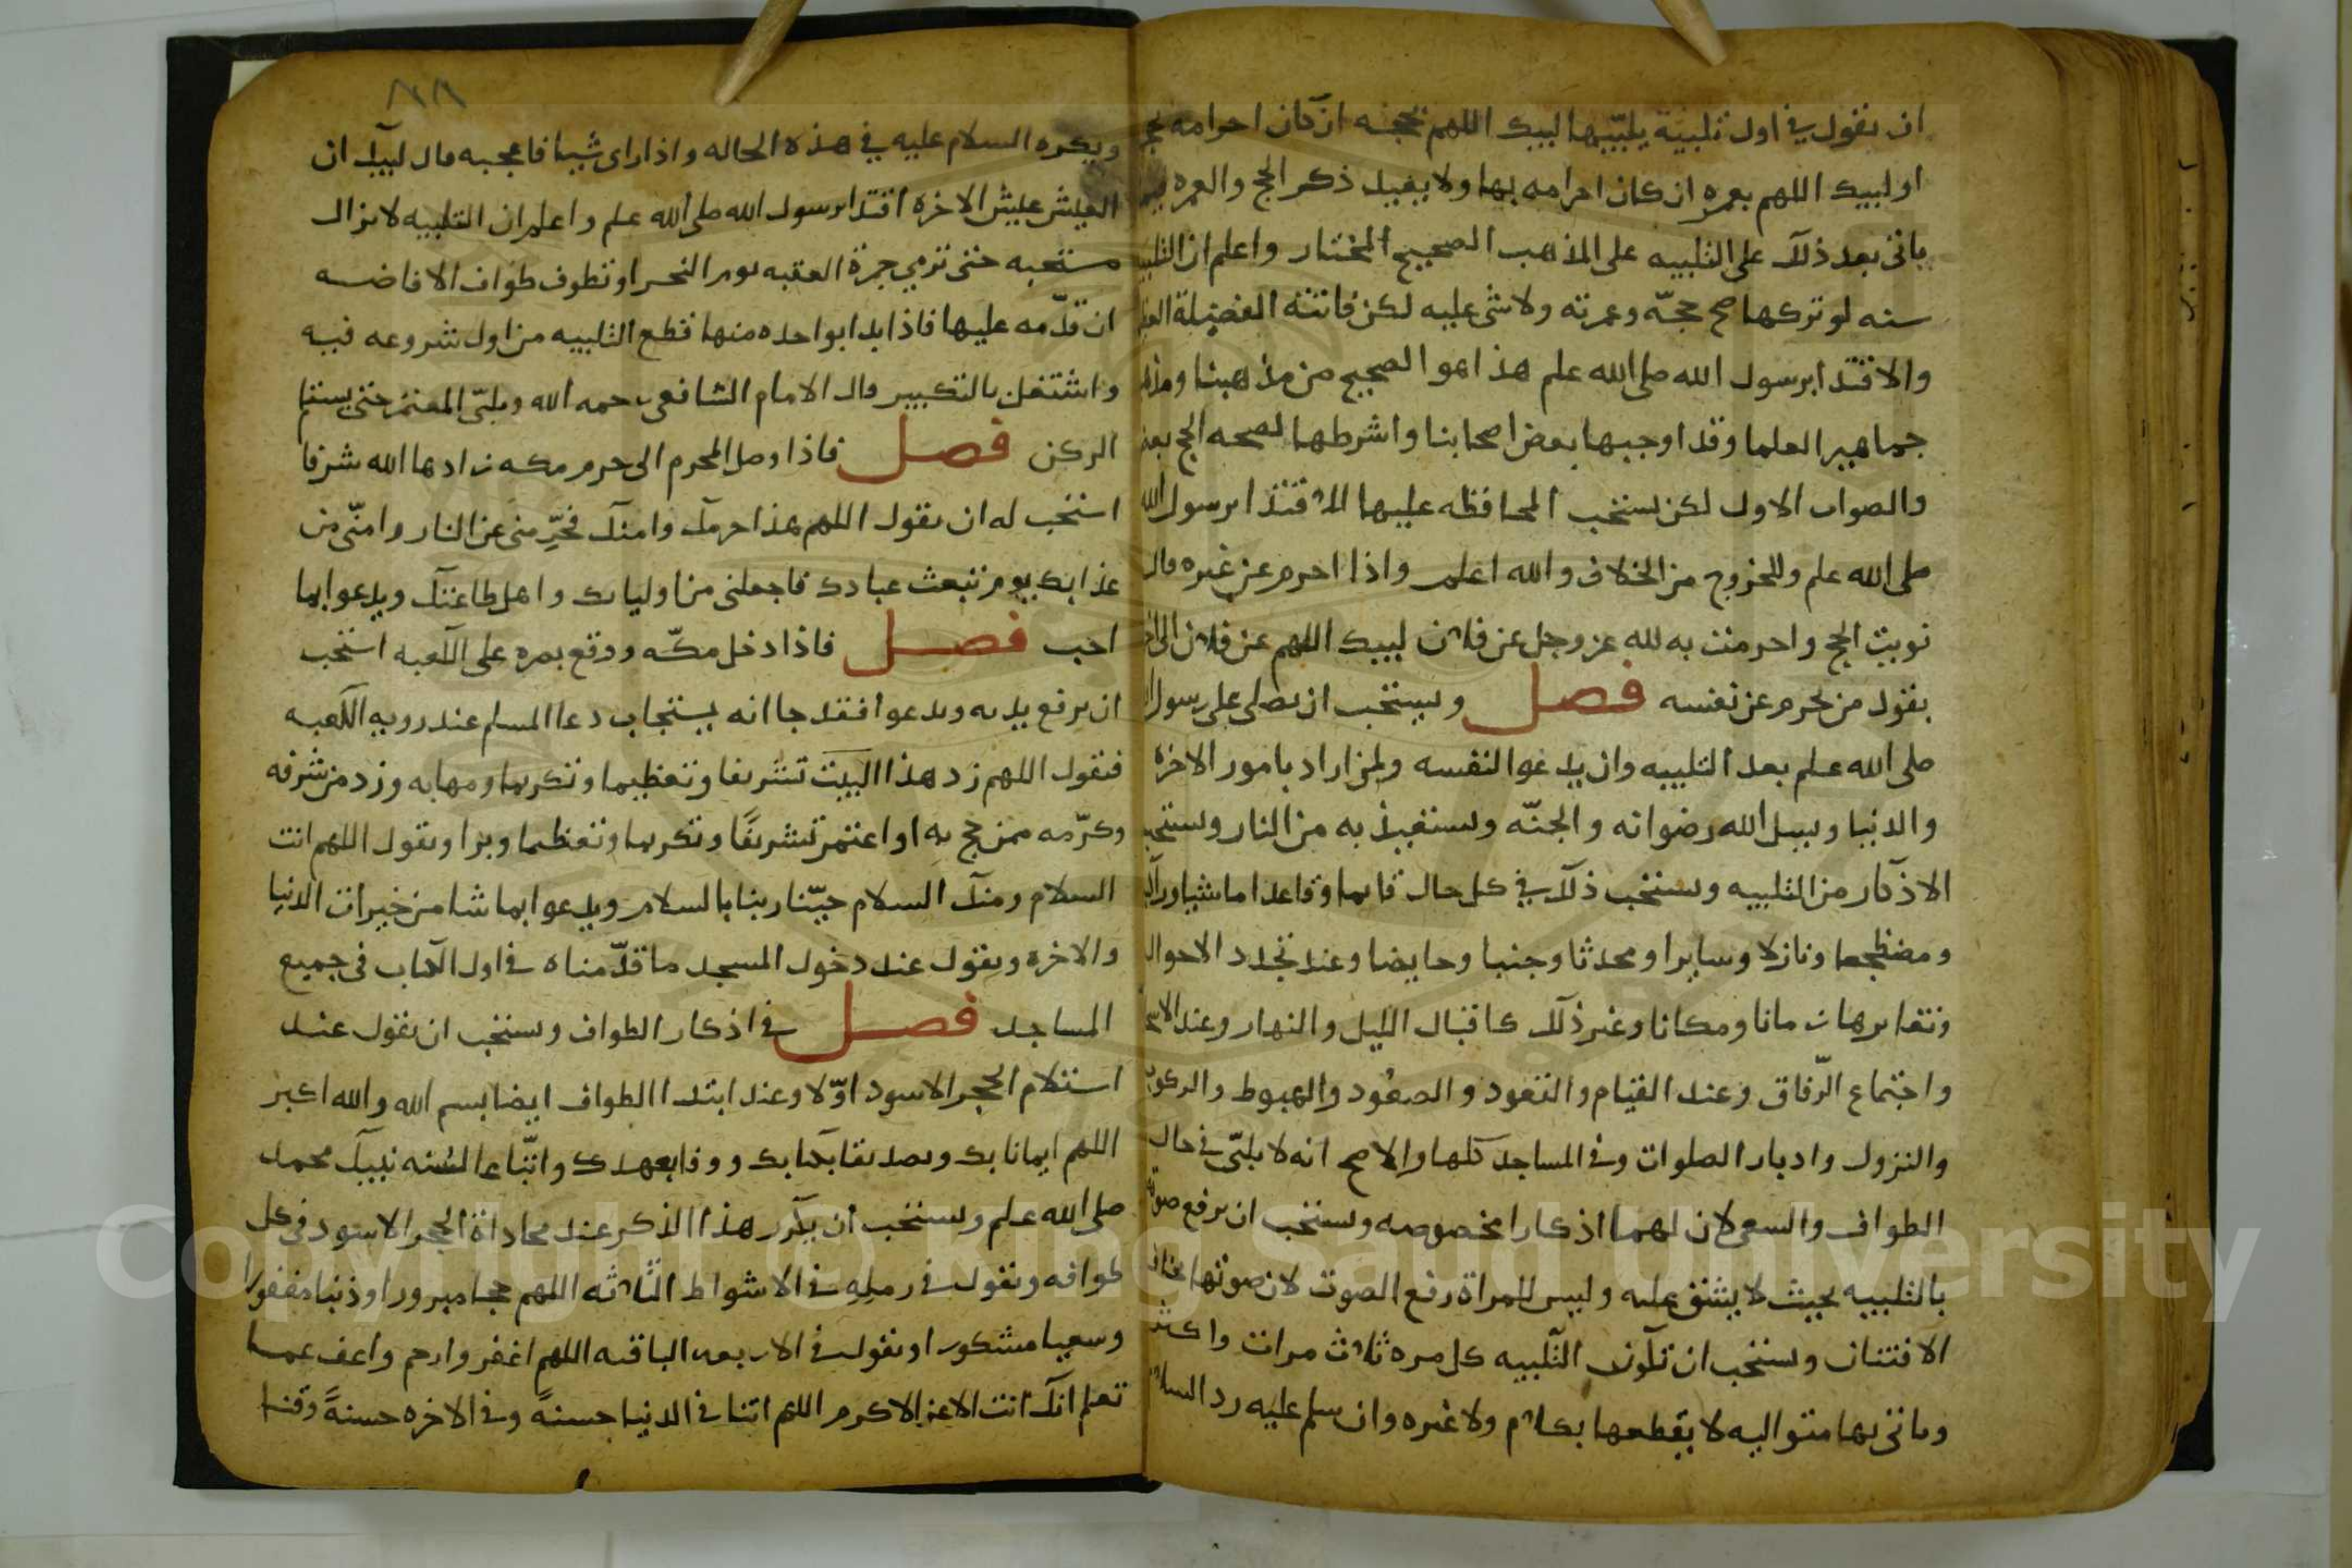 ان يقول في اول تلبية يلبيها لبيك اللهم بحجه ان كان احرامه بحج
او لبيك اللهم بعمره ان كان احرامه بها ولا يعيد ذكر الحج والعمره فيما
ياتي بعد ذلك على التلبيه على المذهب الصحيح المختار واعلم ان التلبيه
سنه لو تركها صح حجّه وعمرته ولا شي عليه لكن فاتته الفضيلة
والاقتدا برسول الله صلى الله علم هذا هو الصحيح من مذهبنا ومذهب
جماهير العلما وقد اوجبها بعض اصحابنا واشرطها لصحه الحج بعضهم
والصواب الاول لكن يستحب المحافظه عليها للاقتدا برسول الله
صلى الله علم وللخروج من الخلاف والله اعلم واذا احرم عن غيره قال
نويت الحج واحرمت به لله عز وجل عن فلان لبيك اللهم عن فلان الى اخر
يقول من يحرم عن نفسه فصل ويستحب ان يصلى على رسول الله
صلى الله علم بعد التلبيه وان يدعوا لنفسه ولمن اراد بامور الاخره
والدنيا ويسل الله رضوانه والجنّه ويستعيذ به من النار ويستحب
الاذكار من التلبيه ويستحب ذلك في كل حال قايما وقاعدا ماشيا وراكبا
ومضطجعا ونازلا وسايرا ومحدثا وجنبا وحايضا وعند تجدد الاحوال
وتغايرها زمانا ومكانا وغير ذلك كاقبال الليل والنهار وعند الاسحار
واجتماع الرّفاق وعند القيام والقعود والصعود والهبوط والركوب
والنزول وادبار الصلوات وفي المساجد كلها والاصح انه لا يلبّى في حال
الطواف والسعى لان لهما اذكارا مخصوصه ويستحب ان يرفع صوته
بالتلبيه بحيث لا يشق عليه وليس للمراة رفع الصوت لان صوتها يخاف
الافتتان ويستحب ان تكون التلبيه كل مره ثلاث مرات واكثر
وياتى بها متواليه لا يقطعها بكلام ولا غيره وان سلم عليه رد السلام
٨٨
ويكره السلام عليه في هذه الحاله واذا راى شيا فاعجبه قال لبيك ان
العيش عيش الاخره اقتدا برسول الله صلى الله علم واعلم ان التلبيه لا تزال
مستحبه حتى ترمي جمرة العقبه يوم النحر او تطوف طواف الافاضه
ان قدّمه عليها فاذا بدا بواحده منها قطع التلبيه من اول شروعه فيه
واشتغل بالتكبير قال الامام الشافعى رحمه الله ويلبّى المعتمر حتى يستلم
الركن فصل فاذا وصل المحرم الى حرم مكه زادها الله شرفا
استحب له ان يقول اللهم هذا حرمك وامنك فحرِّمنى عن النار وامنّى من
عذابك يوم تبعث عبادك فاجعلنى من اوليايك واهل طاعتك ويدعوا بما
احب فصل فاذا دخل مكّه ووقع بصره على الكعبه استحب
ان يرفع يديه ويدعوا فقد جا انه يستجاب دعا المسلم عند رويه الكعبه
فيقول اللهم زد هذا البيت تشريفا وتعظيما وتكريما ومهابه وزد من شرفه
وكرّمه ممن حج به او اعتمر تشريفًا وتكريما وتعظيما وبرا ويقول اللهم انت
السلام ومنك السلام حيّنا ربنا بالسلام ويدعوا بما شا من خيرات الدنيا
والاخره ويقول عند دخول المسجد ما قدّمناه في اول الكتاب في جميع
المساجد فصل في اذكار الطواف ويستحب ان يقول عند
استلام الحجر الاسود اوّلا وعند ابتدا الطواف ايضا بسم الله والله اكبر
اللهم ايمانا بك وتصديقا بكتابك ووفا بعهدك واتّباعا لسُنه نبيك محمد
صلى الله علم ويستحب ان يكرر هذا الذكر عند محاذاة الحجر الاسود في كل
طوافه ويقول في رملِهِ في الاشواط الثلاثه اللهم حجا مبرورا وذنبا مغفورا
وسعيا مشكورا ويقول في الاربعه الباقيه اللهم اغفر وارحم واعف عما
تعلم انك انت الاعز الاكرم اللهم اتنا في الدنيا حسنةً وفي الاخره حسنةً وقنا
Copyright © King Saud University